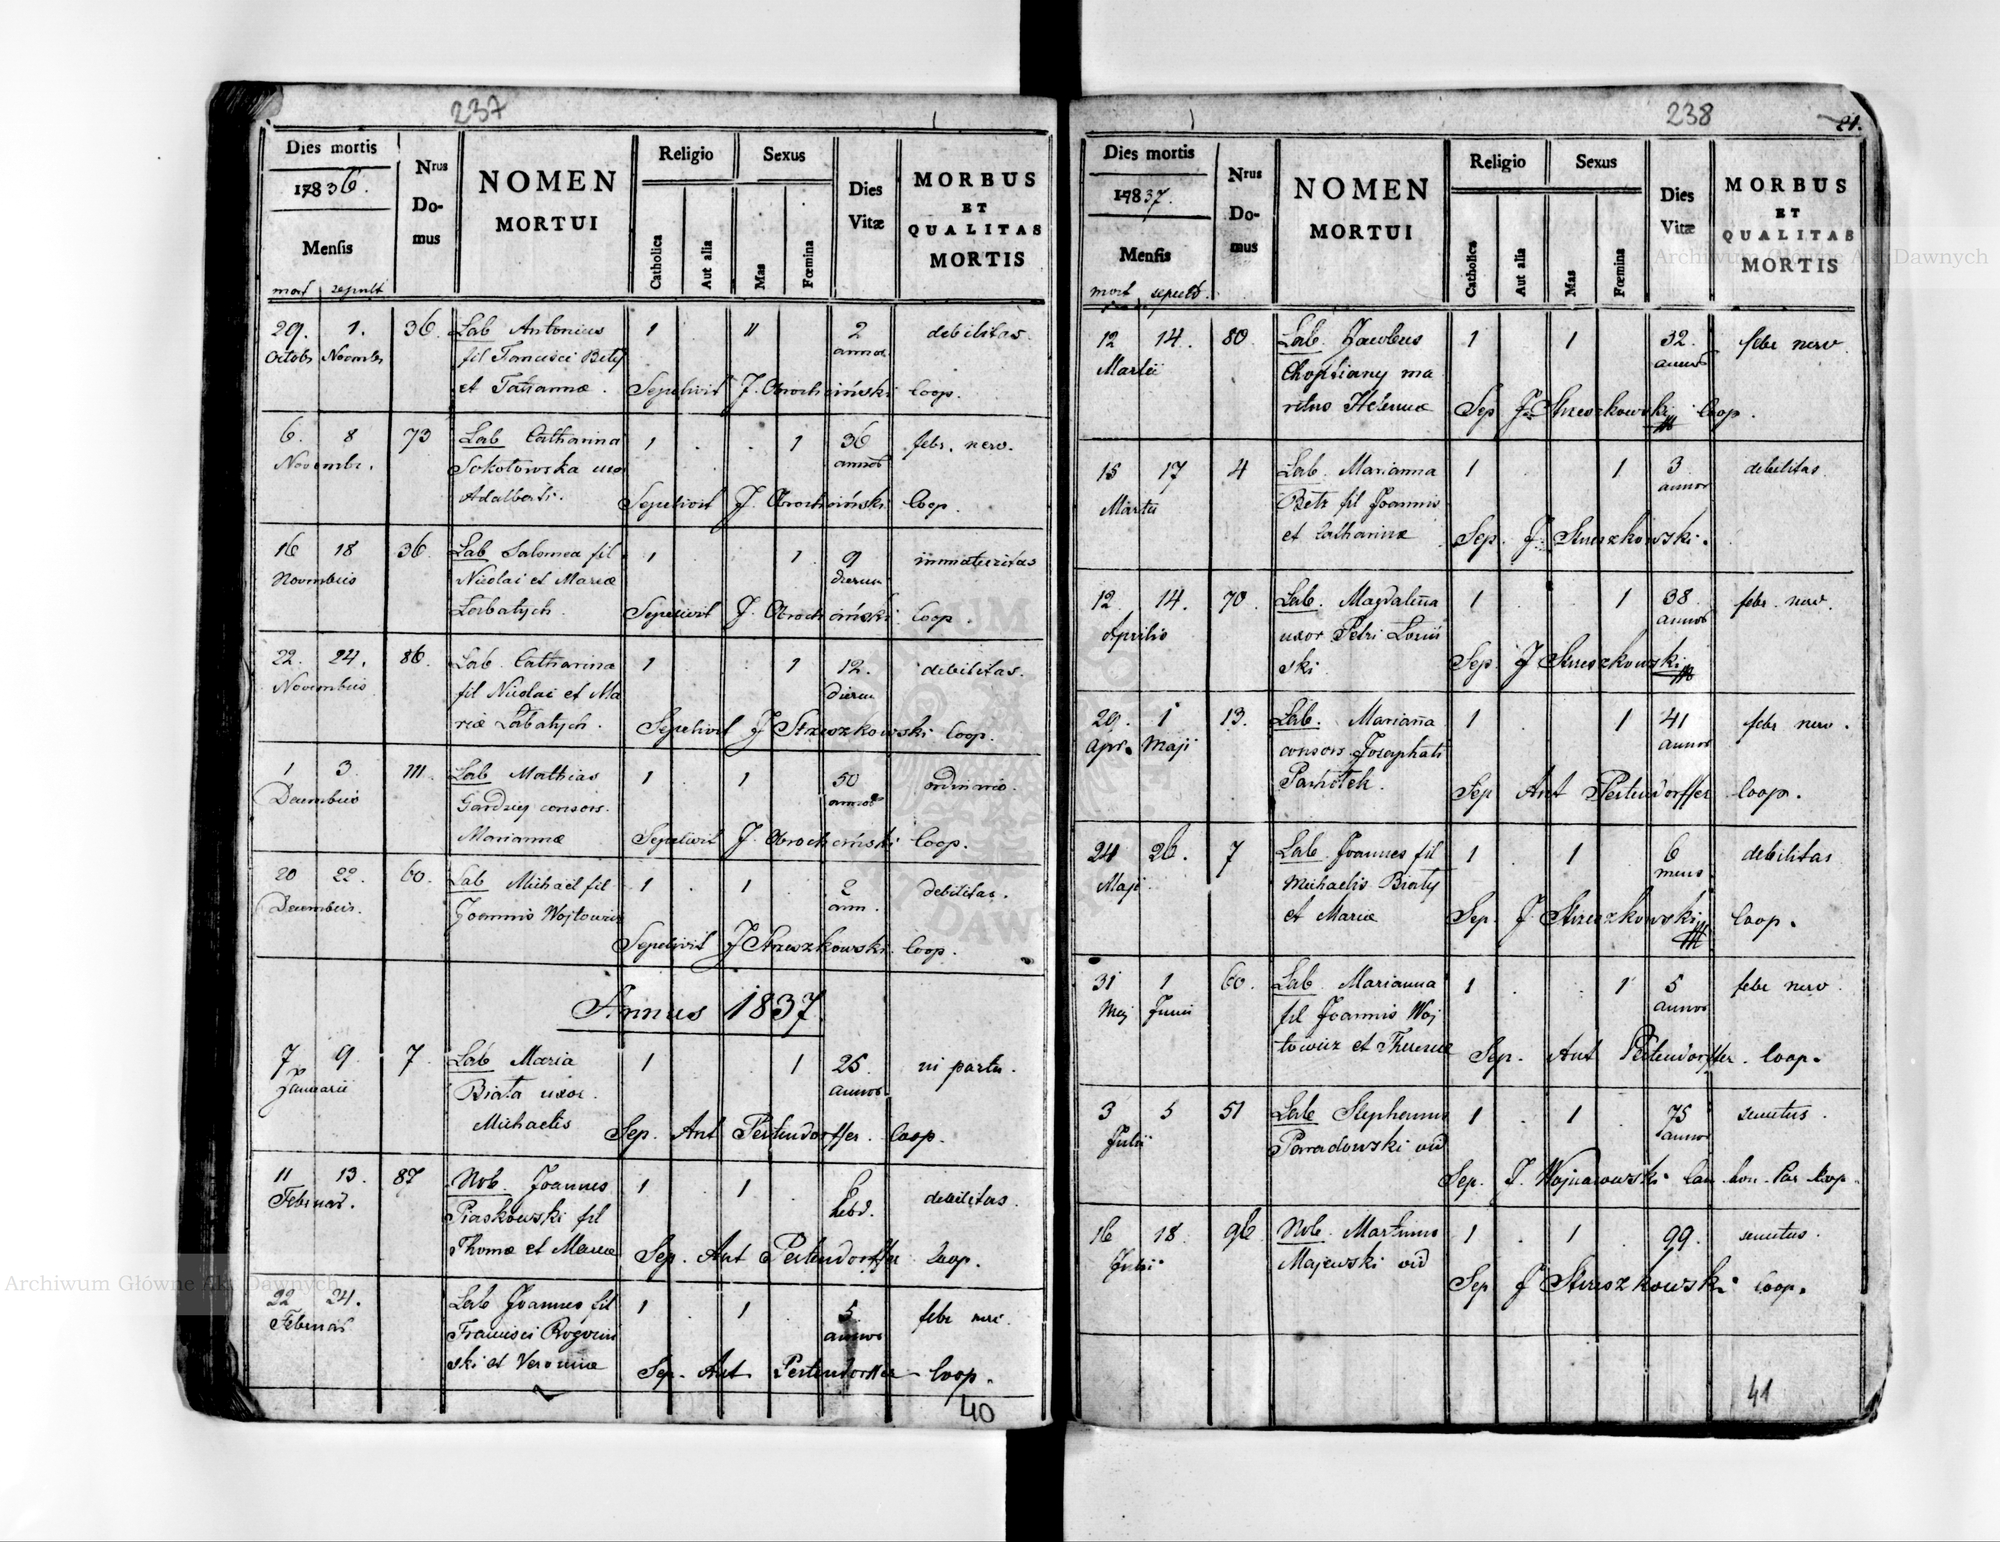 237
Dies mortis
17836.
Mensis
mort sepult
Nrus
Do-
mus
NOMEN
MORTUI
Religio
Catholica
Aut alia
Sexus
Mas
Fœmina
Dies
Vitæ
MORBUS
ET
QUALITAS
MORTIS
29. 1. 36. Lab Antonius 1 " 2 debilitas.
Octobr Novembr fil Francisci Betz annor
et Tatiannæ. Sepelivit J. Obrochciński Coop.
6. 8 73 Lab Catharina 1 . . 1 36 febr. nerv.
Novembr. Sokołowska uxor annor
Adalberti. Sepelivit J. Obrochciński Coop.
16 18 36. Lab Salomea fil 1 . 1 9 immaturitas
Novembris Nicolai et Mariæ dierum
Łorbatych. Sepelivit J. Obrochciński Coop.
22. 24. 86. Lab. Catharina 1 1 12. debilitas.
Novembris fil Nicolai et Ma dierum
riæ Łorbatych. Sepelivit J Strzeszkowski Coop.
1 3. 111. Lab Mathias 1 . 1 50 ordinario.
Decembris consors. annor
Mariannæ Sepelivit J. Obrochciński Coop.
20 22. 60. Lab Michaël fil 1 . 1 . 2 debilitas.
Decembris. Joannis Wojtowicz ann.
Sepelivit J Strzeszkowski. Coop.
Annus 1837.
7 9. 7. Lab Maria 1 1 25. in partu.
Januarii Biała uxor. annor
Michaelis Sep. Ant Pertendorffer. Coop.
11 13. 87 Nob. Joannes 1 1 6 debilitas.
Februar. Piaskowski fil hebd.
Thomæ et Mariæ Sep. Ant Pertendorffer Coop.
22 24. Lab Joannes fil 1 . 1 5 febr
Februar Francisci Rogoziń annor
ski et Veronicæ Sep. Ant. Pertendorffer Coop.
40
238
21.
Dies mortis
17837.
Mensis
mort sepult.
Nrus
Do-
mus
NOMEN
MORTUI
Religio
Catholica
Aut alia
Sexus
Mas
Fœmina
Dies
Vitæ
MORBUS
ET
QUALITAS
MORTIS
12 14. 80 Lab. Jacobus 1 1 32. febr nerv.
Martii Choptiany ma annor
ritus Helenæ Sep J. Strzeszkowski Coop.
15 17 4 Lab. Marianna 1 . 1 3 debilitas
Martii Betz fil Joannis annor
et Catharinæ Sep. J. Strzeszkowski.
12 14. 70. Lab. Magdalena 1 . 1 38 febr. nerv.
Aprilis uxor Petri annor
ski. Sep. J Strzeszkowski
29. 1 13. Lab. Marianna 1 . 1 41 febr nerv.
Apr. Maji consors Josephati annor
Pachołek. Sep Ant Pertendorffer Coop.
24 26. 7 Lab. Joannes fil 1 . 1 . 6 debilitas
Maji Michaelis Biały mens
et Mariæ Sep. J. Strzeszkowski Coop.
31 1 60. Lab. Marianna 1 . . 1 5 febr nerv.
Maj. Junii fil Joannis Woj annor
towicz et Theresiæ Sep. Ant Pertendorffer. Coop.
3 5 51 Lab Stephanus 1 . 1 75 senectus.
Julii Paradowski vid annor
Sep. J. Wojnarowski Can. hon. Par Coop.
16 18. 96 Nob. Martinus 1 . 1 . 99. senectus.
Julii Majewski vid
Sep J Strzeszkowski Coop.
41
Archiwum Główne Akt Dawnych
Archiwum Główne Akt Dawnych